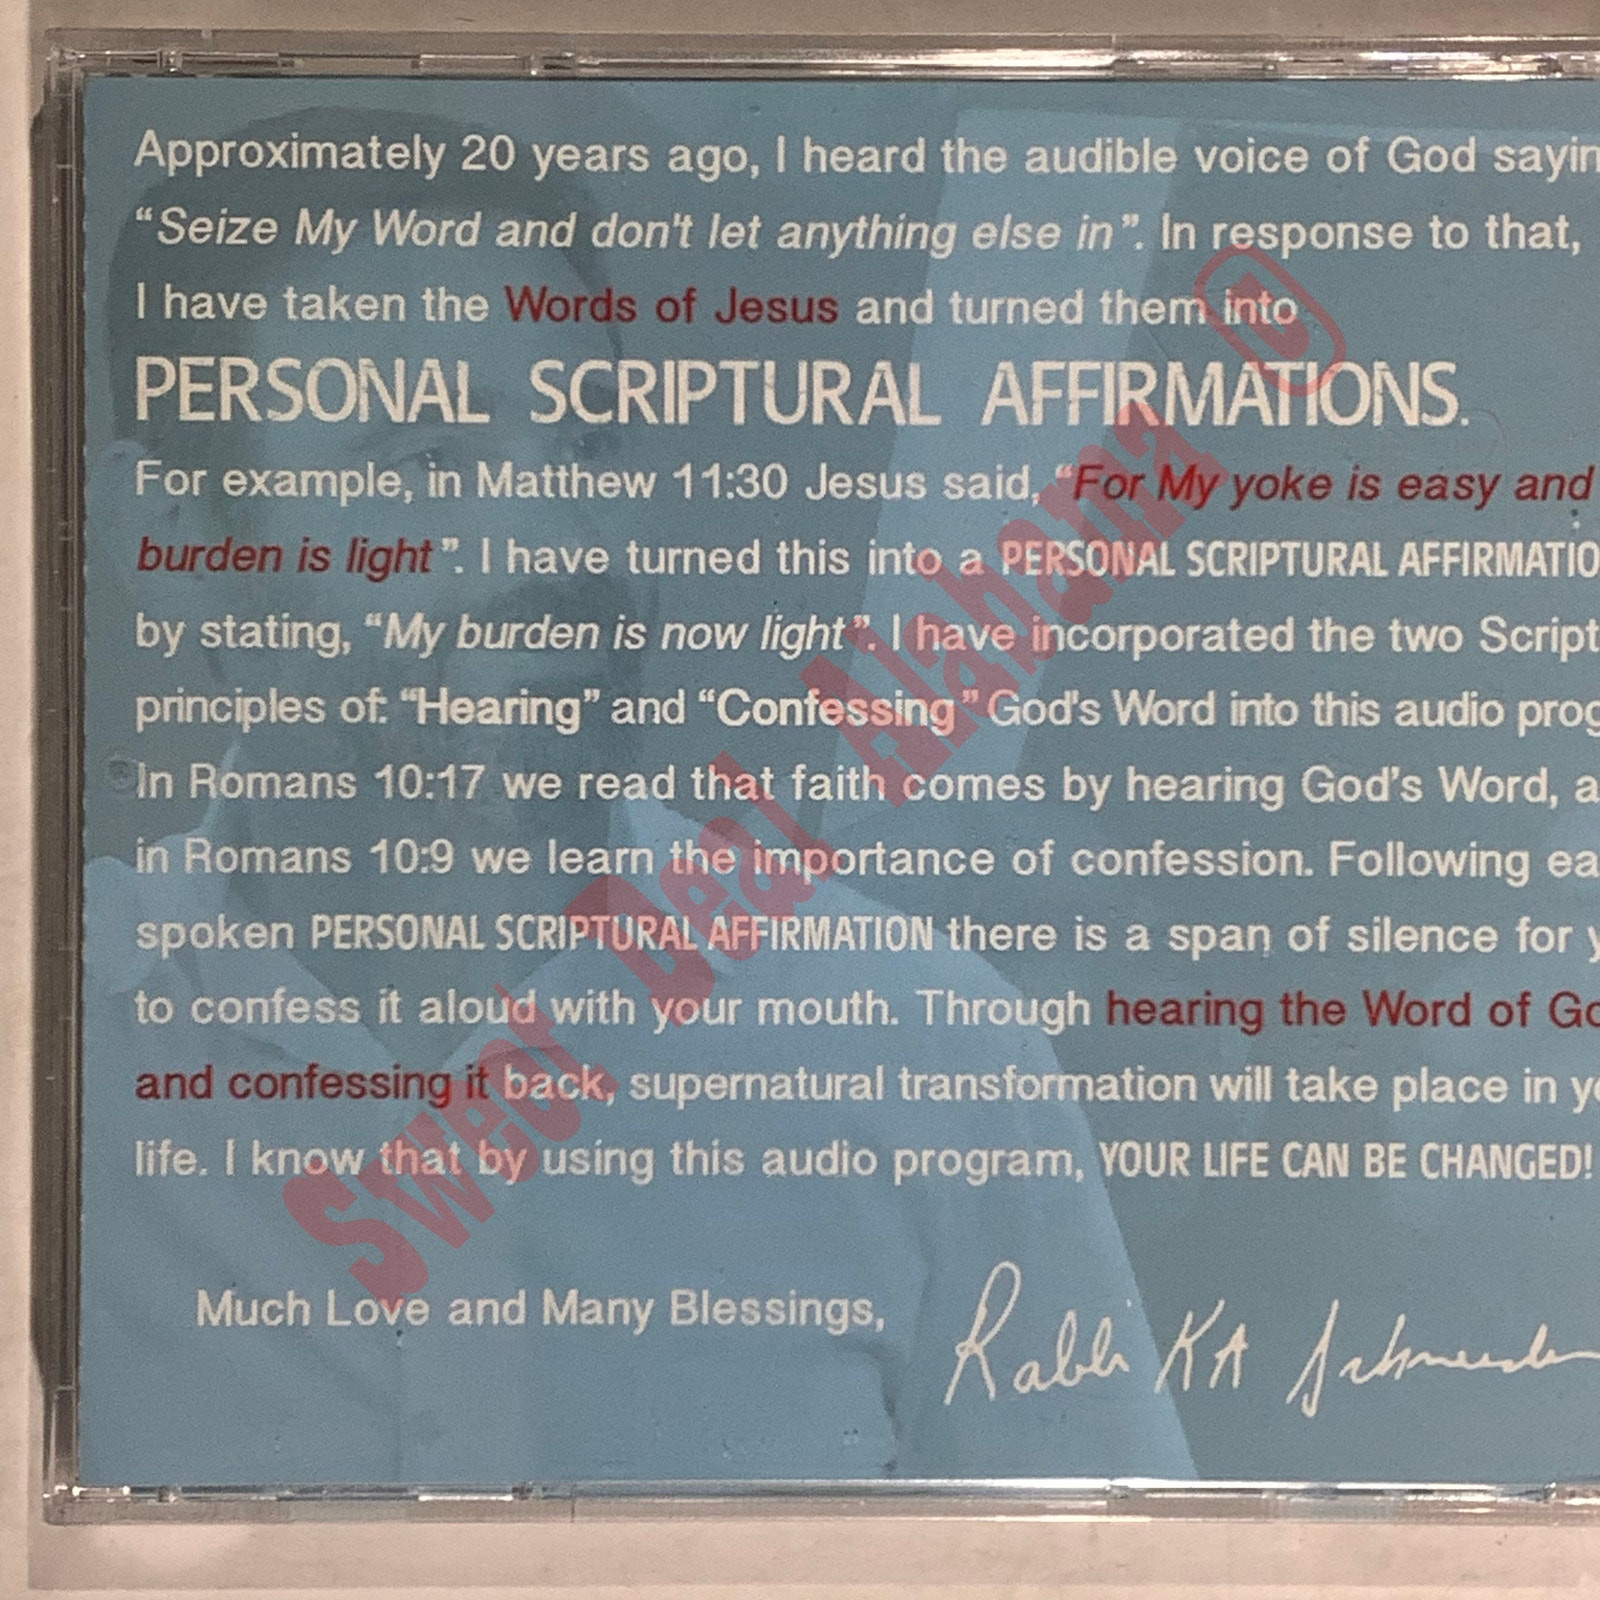 Approximately 20 years ago, I heard the audible voice of God sayin
“Seize My Word and don't let anything else in”. In response to that,
I have taken the Words of Jesus and turned them into
PERSONAL SCRIPTURAL AFFIRMATIONS.
For example, in Matthew 11:30 Jesus said, “For My yoke is easy and
burden is light”. I have turned this into a PERSONAL SCRIPTURAL AFFIRMATIO
by stating, “My burden is now light”. I have incorporated the two Script
principles of: “Hearing” and “Confessing” God's Word into this audio prog
In Romans 10:17 we read that faith comes by hearing God's Word, a
in Romans 10:9 we learn the importance of confession. Following ea
spoken PERSONAL SCRIPTURAL AFFIRMATION there is a span of silence for y
to confess it aloud with your mouth. Through hearing the Word of Go
and confessing it back, supernatural transformation will take place in yo
life. I know that by using this audio program, YOUR LIFE CAN BE CHANGED!
Much Love and Many Blessings,
Rabbi KA Schneider
Sweet Deal Alabama ©